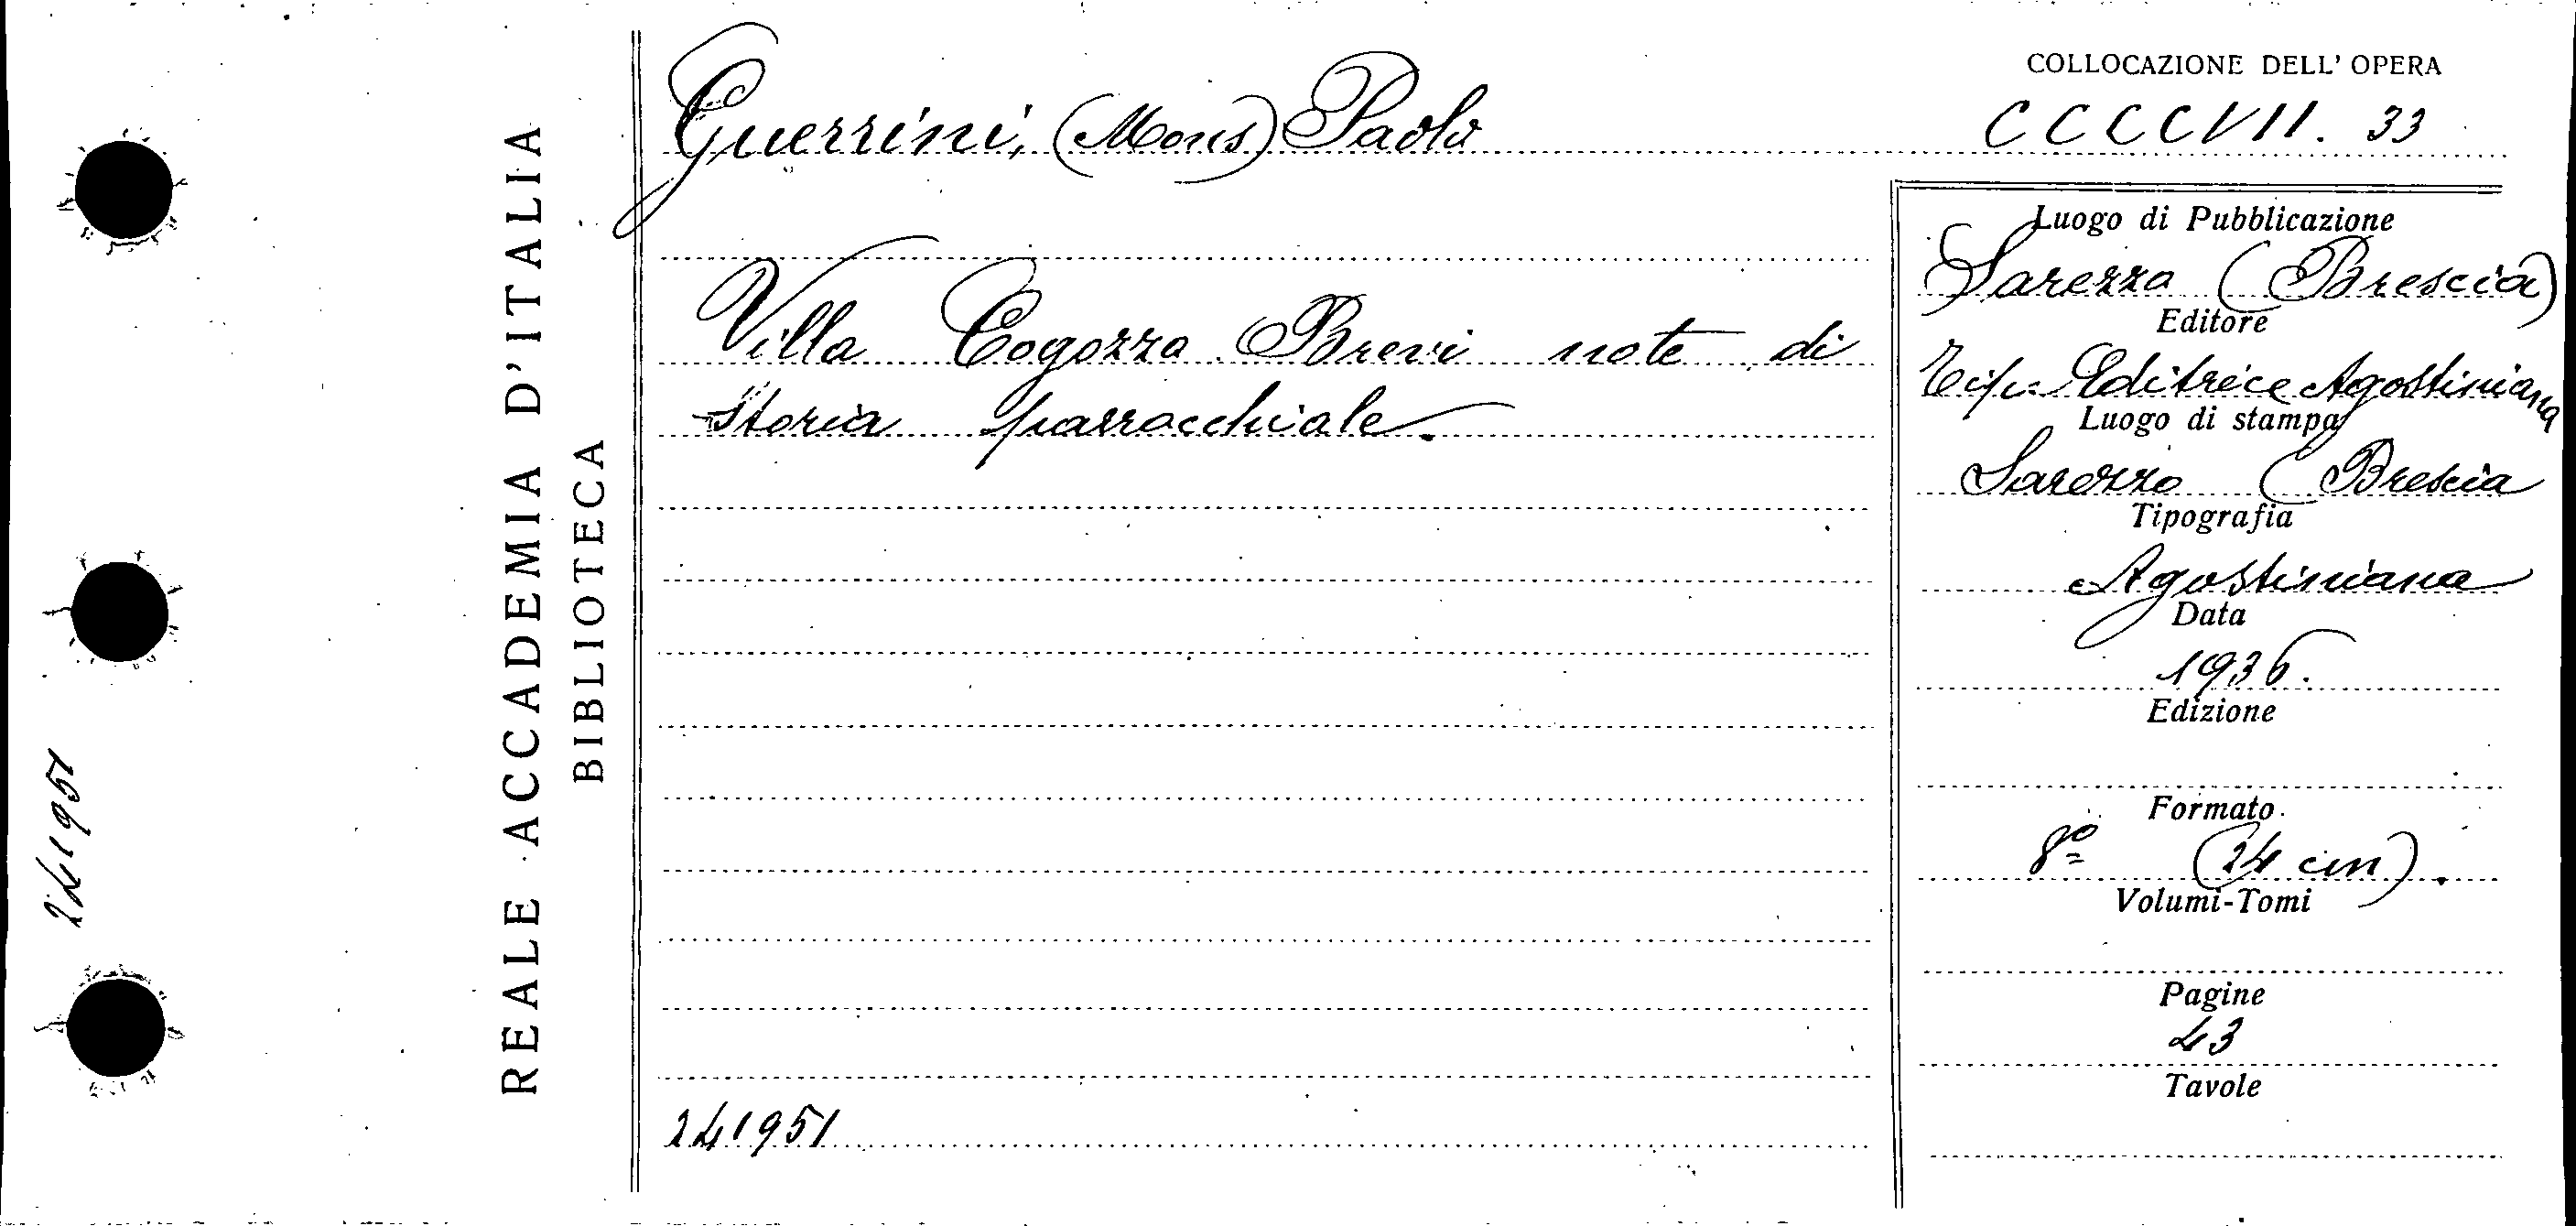 241951
REALE ACCADEMIA D'ITALIA
BIBLIOTECA
Guerrini, (Mons) Paolo
Villa Cogozzo Brevi note di
storia parrocchiale.
241951
COLLOCAZIONE DELL' OPERA
CCCCVII. 33
Luogo di Pubblicazione
Sarezzo (Brescia)
Editore
Tip. Editrice Agostiniana
Luogo di stampa
Sarezzo (Brescia
Tipografia
Agostiniana
Data
1936.
Edizione
Formato
8º (24 cm).
Volumi-Tomi
Pagine
43
Tavole